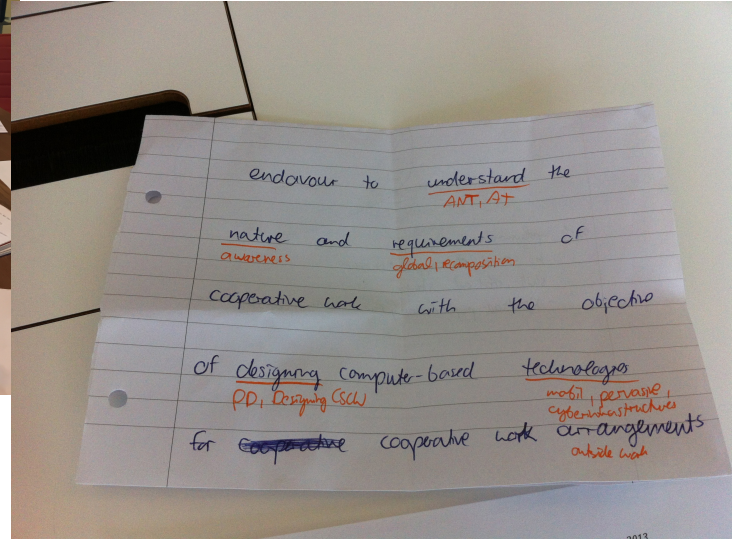 endavour to understand the
ANT, AT
nature and requirements of
awareness global, recomposition
cooperative work with the objective
of designing computer-based technologies
PD, Designing CSCW mobil, pervasive,
cyberinfrastructures
for cooperative cooperative work arrangements
outside work
2013